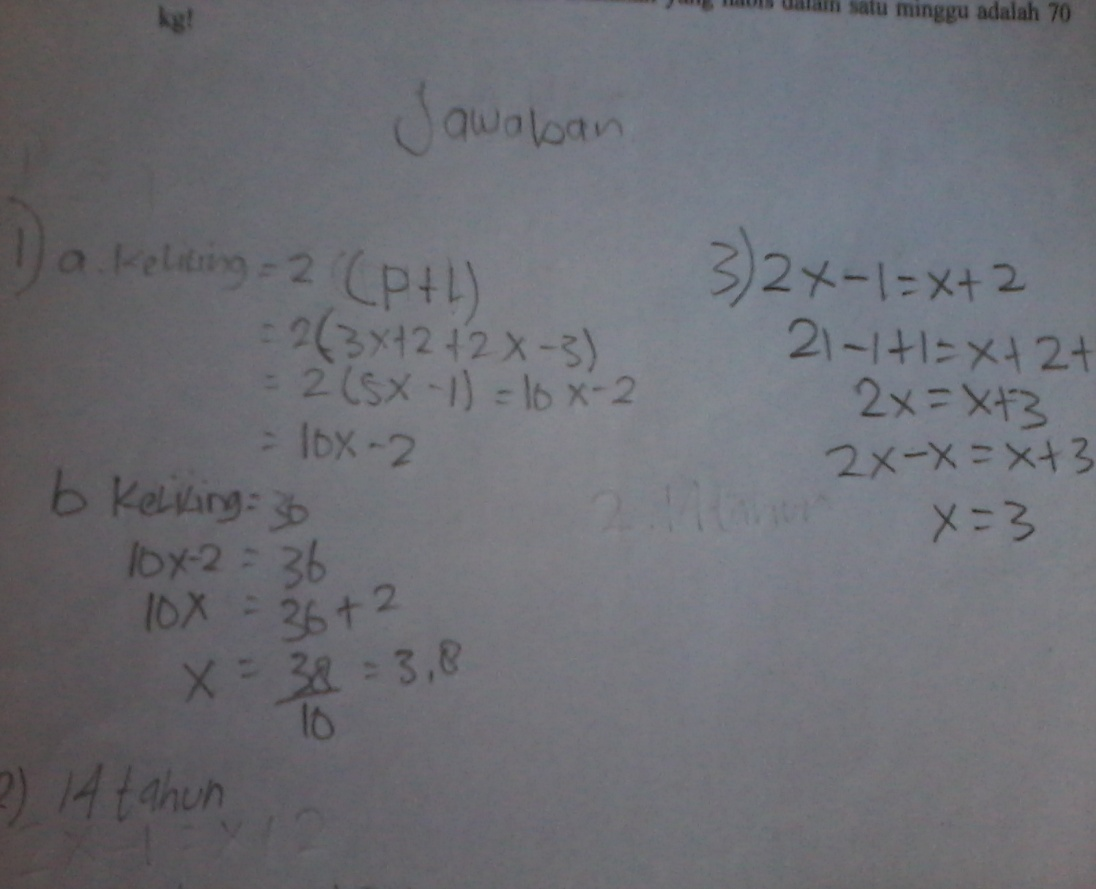 dalam satu minggu adalah 70
kg!
Jawaban
1) a. Keliling = 2 (P+l)
= 2(3x+2+2x-3)
= 2(5x-1) = 10x-2
= 10x-2
b Keliling = 36
10x-2 = 36
10x = 36+2
x = 38/10 = 3,8
2) 14 tahun
x-1=x+2
3) 2x-1=x+2
21-1+1=x+2+
2x=x+3
2x-x=x+3
x=3
2. 14 tahun